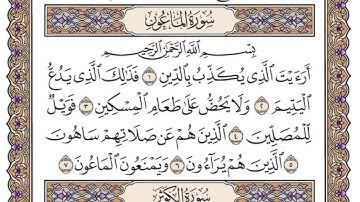 سُورَةُ المَاعُونِ
بِسْمِ ٱللَّهِ ٱلرَّحْمَٰنِ ٱلرَّحِيمِ
أَرَءَيْتَ ٱلَّذِى يُكَذِّبُ بِٱلدِّينِ ١ فَذَٰلِكَ ٱلَّذِى يَدُعُّ
ٱلْيَتِيمَ ٢ وَلَا يَحُضُّ عَلَىٰ طَعَامِ ٱلْمِسْكِينِ ٣ فَوَيْلٌ
لِّلْمُصَلِّينَ ٤ ٱلَّذِينَ هُمْ عَن صَلَاتِهِمْ سَاهُونَ
٥ ٱلَّذِينَ هُمْ يُرَآءُونَ ٦ وَيَمْنَعُونَ ٱلْمَاعُونَ ٧
سُورَةُ الكَوْثَرِ